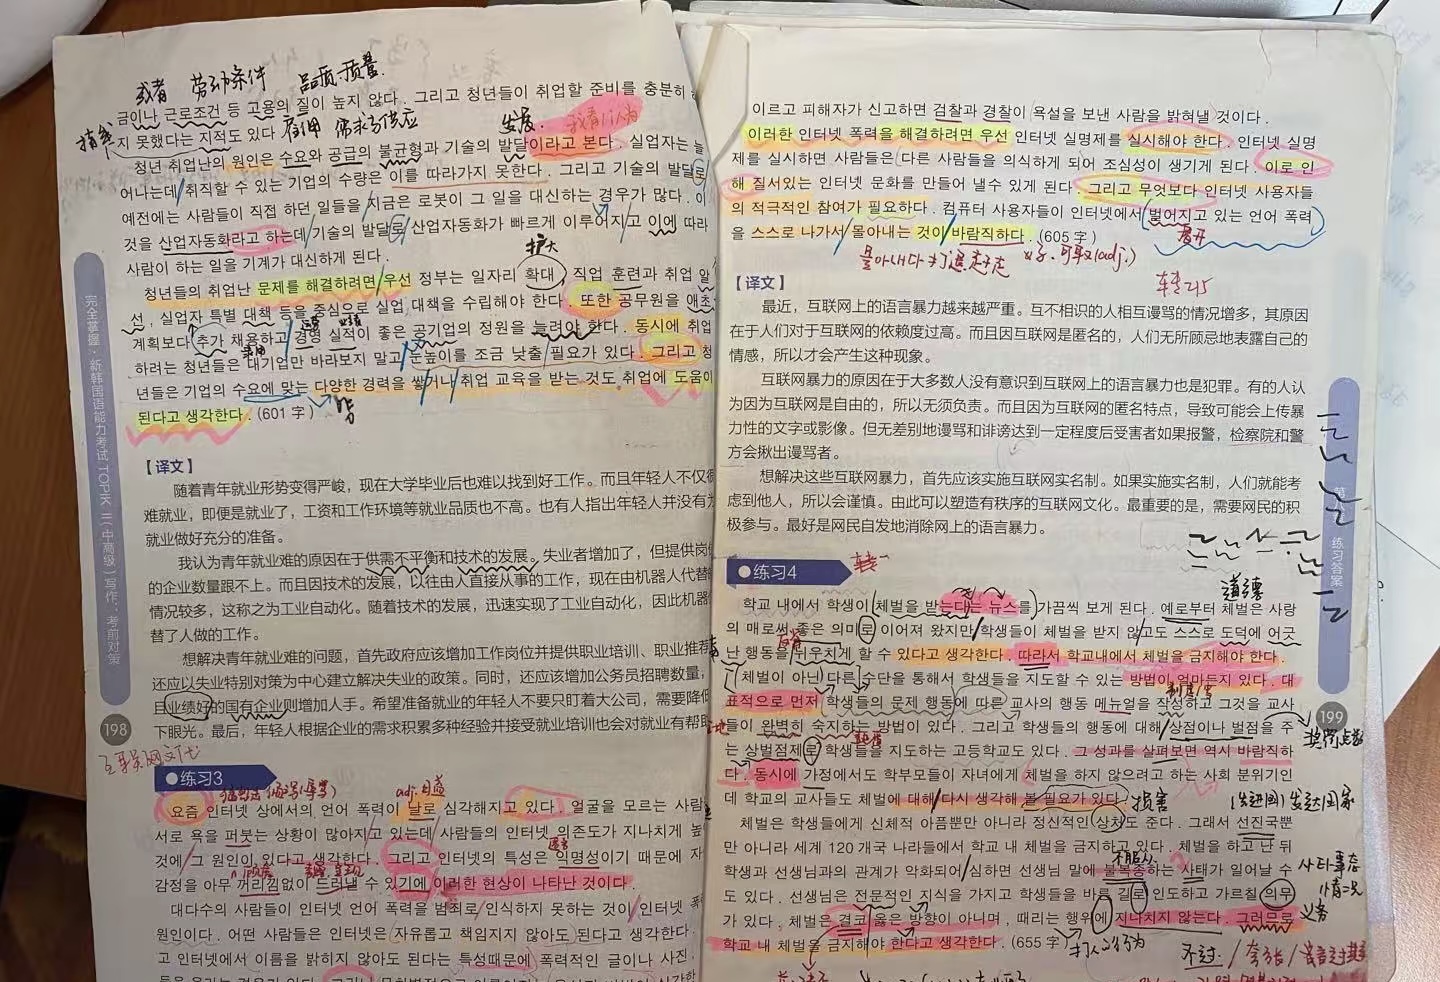 或者 劳动条件 品质·质量
금이나 근로조건 등 고용의 질이 높지 않다. 그리고 청년들이 취업할 준비를 충분히 하
지 못했다는 지적도 있다
雇用 需求与供应 发展
청년 취업난의 원인은 수요와 공급의 불균형과 기술의 발달이라고 본다. 실업자는 늘
어나는데 취직할 수 있는 기업의 수량은 이를 따라가지 못한다. 그리고 기술의 발달로
예전에는 사람들이 직접 하던 일들을 지금은 로봇이 그 일을 대신하는 경우가 많다. 이
것을 산업자동화라고 하는데 기술의 발달로 산업자동화가 빠르게 이루어지고 이에 따라
사람이 하는 일을 기계가 대신하게 된다.
扩大
청년들의 취업난 문제를 해결하려면 우선 정부는 일자리 확대, 직업 훈련과 취업 알
선, 실업자 특별 대책 등을 중심으로 실업 대책을 수립해야 한다. 또한 공무원을 애초
계획보다 추가 채용하고 경영 실적이 좋은 공기업의 정원을 늘려야 한다. 동시에 취업
하려는 청년들은 대기업만 바라보지 말고 눈높이를 조금 낮출 필요가 있다. 그리고 청
년들은 기업의 수요에 맞는 다양한 경력을 쌓거나 취업 교육을 받는 것도 취업에 도움이
된다고 생각한다. (601字)
【译文】
随着青年就业形势变得严峻，现在大学毕业后也难以找到好工作。而且年轻人不仅很
难就业，即便是就业了，工资和工作环境等就业品质也不高。也有人指出年轻人并没有为
就业做好充分的准备。
我认为青年就业难的原因在于供需不平衡和技术的发展。失业者增加了，但提供岗
的企业数量跟不上。而且因技术的发展，以往由人直接从事的工作，现在由机器人代替
情况较多，这称之为工业自动化。随着技术的发展，迅速实现了工业自动化，因此机器
替了人做的工作。
想解决青年就业难的问题，首先政府应该增加工作岗位并提供职业培训、职业推荐
还应以失业特别对策为中心建立解决失业的政策。同时，还应该增加公务员招聘数量，
且业绩好的国有企业则增加人手。希望准备就业的年轻人不要只盯着大公司，需要降低
下眼光。最后，年轻人根据企业的需求积累多种经验并接受就业培训也会对就业有帮助
完全掌握·新韩国语能力考试TOPIK II（中高级）写作：考前对策
198
练习3
요즘 인터넷 상에서의 언어 폭력이 날로 심각해지고 있다. 얼굴을 모르는 사람
서로 욕을 퍼붓는 상황이 많아지고 있는데 사람들의 인터넷 의존도가 지나치게 높
것에 그 원인이 있다고 생각한다. 그리고 인터넷의 특성은 익명성이기 때문에 자
감정을 아무 꺼리낌없이 드러낼 수 있기에 이러한 현상이 나타난 것이다.
대다수의 사람들이 인터넷 언어 폭력을 범죄로 인식하지 못하는 것이 인터넷 폭
원인이다. 어떤 사람들은 인터넷은 자유롭고 책임지지 않아도 된다고 생각한다.
고 인터넷에서 이름을 밝히지 않아도 된다는 특성때문에 폭력적인 글이나 사진,
이르고 피해자가 신고하면 검찰과 경찰이 욕설을 보낸 사람을 밝혀낼 것이다.
이러한 인터넷 폭력을 해결하려면 우선 인터넷 실명제를 실시해야 한다. 인터넷 실명
제를 실시하면 사람들은 다른 사람들을 의식하게 되어 조심성이 생기게 된다. 이로 인
해 질서있는 인터넷 문화를 만들어 낼수 있게 된다. 그리고 무엇보다 인터넷 사용자들
의 적극적인 참여가 필요하다. 컴퓨터 사용자들이 인터넷에서 벌어지고 있는 언어 폭력
을 스스로 나가서 몰아내는 것이 바람직하다. (605字)
【译文】
最近，互联网上的语言暴力越来越严重。互不相识的人相互谩骂的情况增多，其原因
在于人们对于互联网的依赖度过高。而且因互联网是匿名的，人们无所顾忌地表露自己的
情感，所以才会产生这种现象。
互联网暴力的原因在于大多数人没有意识到互联网上的语言暴力也是犯罪。有的人认
为因为互联网是自由的，所以无须负责。而且因为互联网的匿名特点，导致可能会上传暴
力性的文字或影像。但无差别地谩骂和诽谤达到一定程度后受害者如果报警，检察院和警
方会揪出谩骂者。
想解决这些互联网暴力，首先应该实施互联网实名制。如果实施实名制，人们就能考
虑到他人，所以会谨慎。由此可以塑造有秩序的互联网文化。最重要的是，需要网民的积
极参与。最好是网民自发地消除网上的语言暴力。
练习答案
199
练习4
道德
학교 내에서 학생이 체벌을 받는다는 뉴스를 가끔씩 보게 된다. 예로부터 체벌은 사랑
의 매로써 좋은 의미로 이어져 왔지만 학생들이 체벌을 받지 않고도 스스로 도덕에 어긋
난 행동을 뉘우치게 할 수 있다고 생각한다. 따라서 학교내에서 체벌을 금지해야 한다.
체벌이 아닌 다른 수단을 통해서 학생들을 지도할 수 있는 방법이 얼마든지 있다. 대
표적으로 먼저 학생들의 문제 행동에 따른 교사의 행동 메뉴얼을 작성하고 그것을 교사
들이 완벽히 숙지하는 방법이 있다. 그리고 학생들의 행동에 대해 상점이나 벌점을 주
는 상벌점제로 학생들을 지도하는 고등학교도 있다. 그 성과를 살펴보면 역시 바람직하
다. 동시에 가정에서도 학부모들이 자녀에게 체벌을 하지 않으려고 하는 사회 분위기인
데 학교의 교사들도 체벌에 대해 다시 생각해 볼 필요가 있다.
损害
发达国家
체벌은 학생들에게 신체적 아픔뿐만 아니라 정신적인 상처도 준다. 그래서 선진국뿐
만 아니라 세계 120개국 나라들에서 학교 내 체벌을 금지하고 있다. 체벌을 하고 난 뒤
학생과 선생님과의 관계가 악화되어 심하면 선생님 말에 불복종하는 사태가 일어날 수
도 있다. 선생님은 전문적인 지식을 가지고 학생들을 바른 길로 인도하고 가르칠 의무
가 있다. 체벌은 결코 옳은 방향이 아니며, 때리는 행위에 지나치지 않는다. 그러므로
학교 내 체벌을 금지해야 한다고 생각한다. (655字)
义务